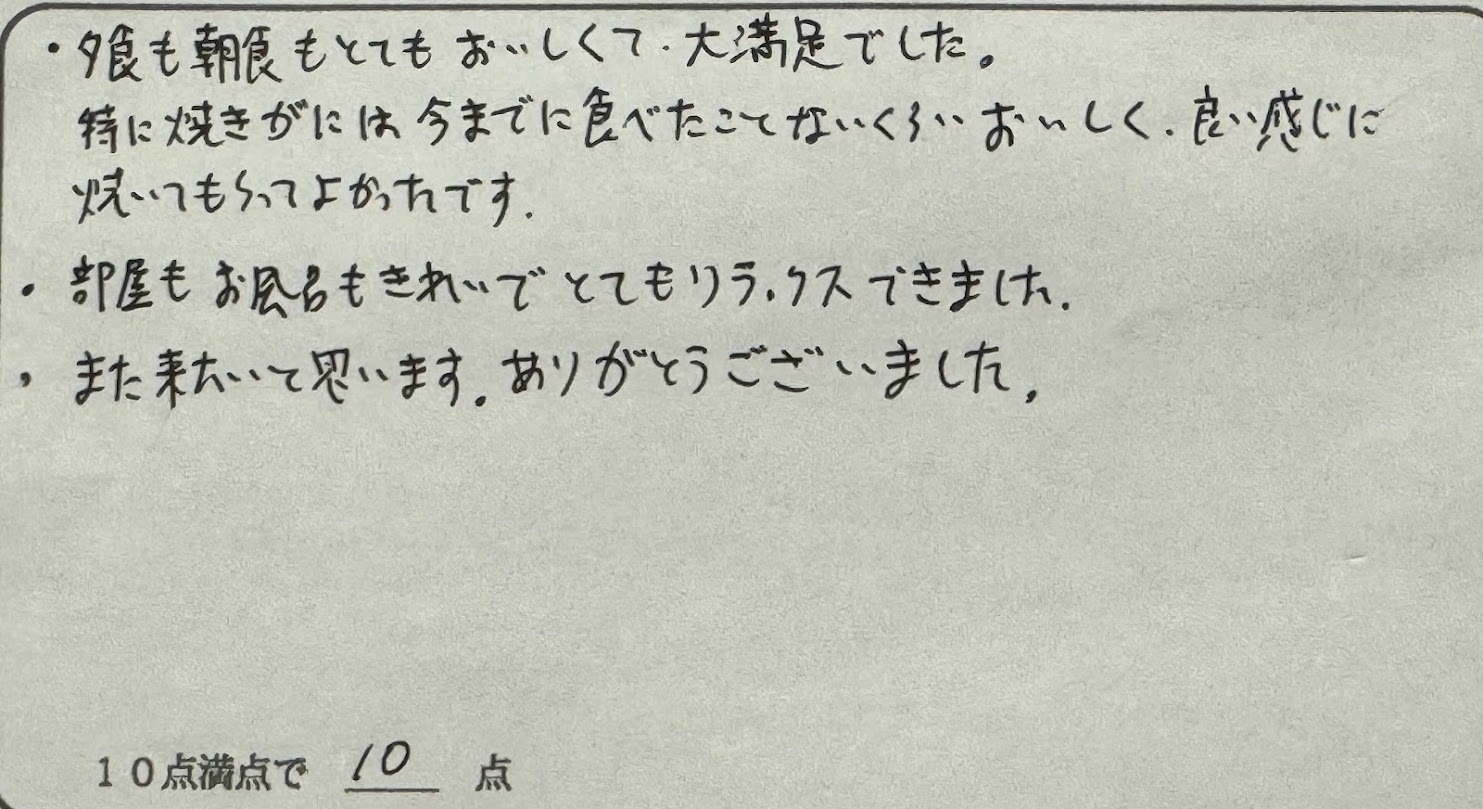 ・夕食も朝食もとてもおいしくて、大満足でした。
特に焼きがには今までに食べたことないくらいおいしく、良い感じに
焼いてもらってよかったです。
・部屋もお風呂もきれいでとてもリラックスできました。
・また来たいと思います。ありがとうございました。
10点満点で 10 点